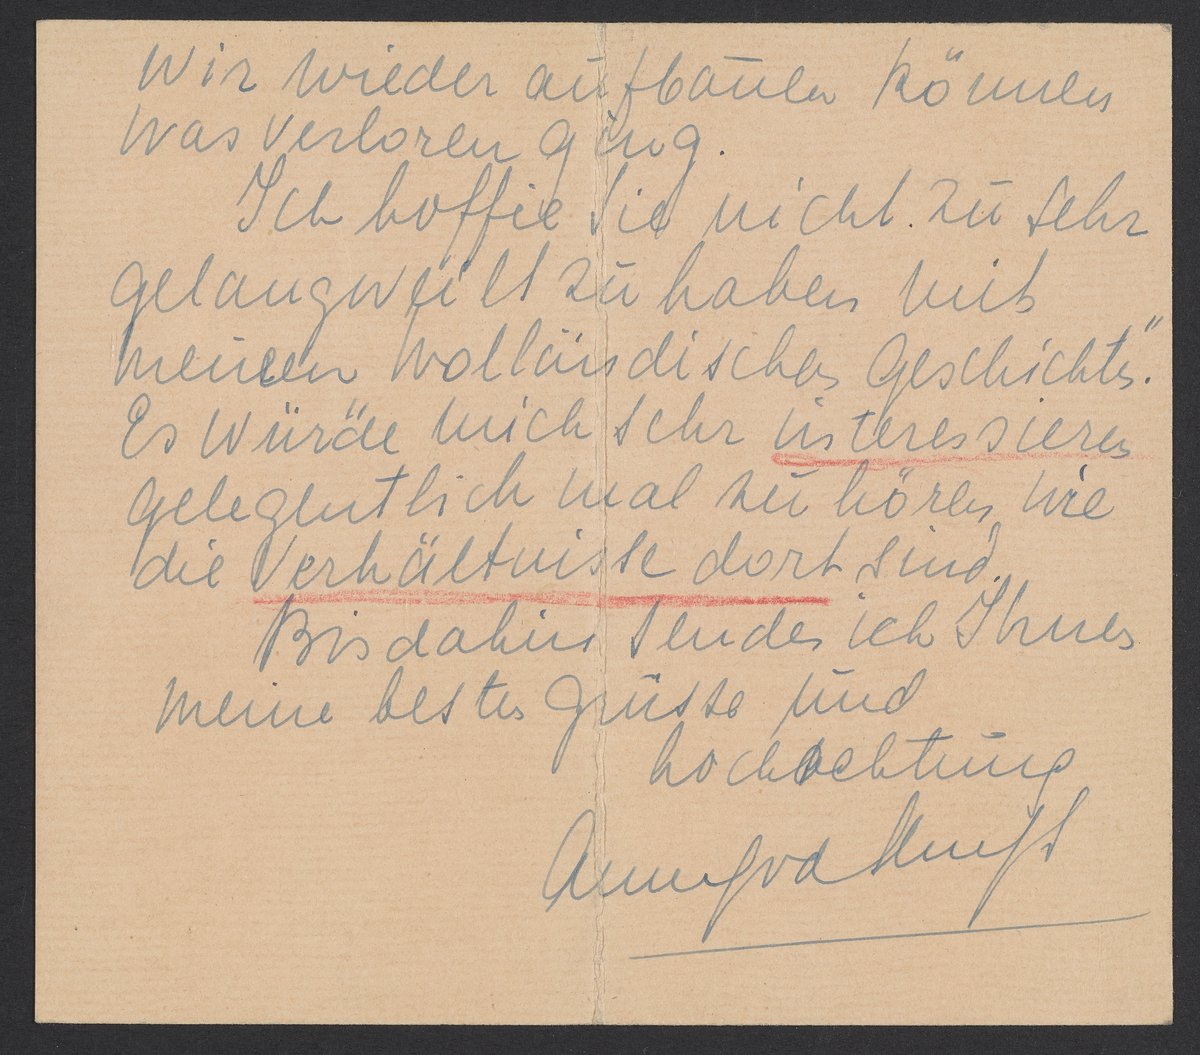 Wir wieder aufbauen können
was verloren ging.
Ich hoffe Sie nicht zu sehr
gelangweilt zu haben mit
meinen holländischen Geschichten."
Es würde mich sehr interessieren
gelegentlich mal zu hören wie
die Verhältnisse dort sind.
Bis dahin sende ich Ihnen
meine besten Grüsse und
hochachtung